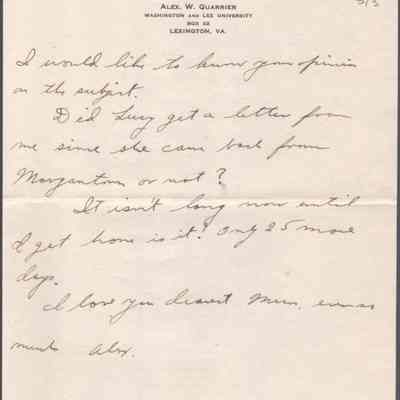 3/3
ALEX. W. QUARRIER
WASHINGTON AND LEE UNIVERSITY
BOX 52
LEXINGTON, VA.
I would like to know your opinion
on the subject.
Did Lucy get a letter from
me since she came back from
Morgantown or not?
It isn't long now until
I get home is it? Only 25 more
days.
I love you dearest Mum, ever so
much Alex.